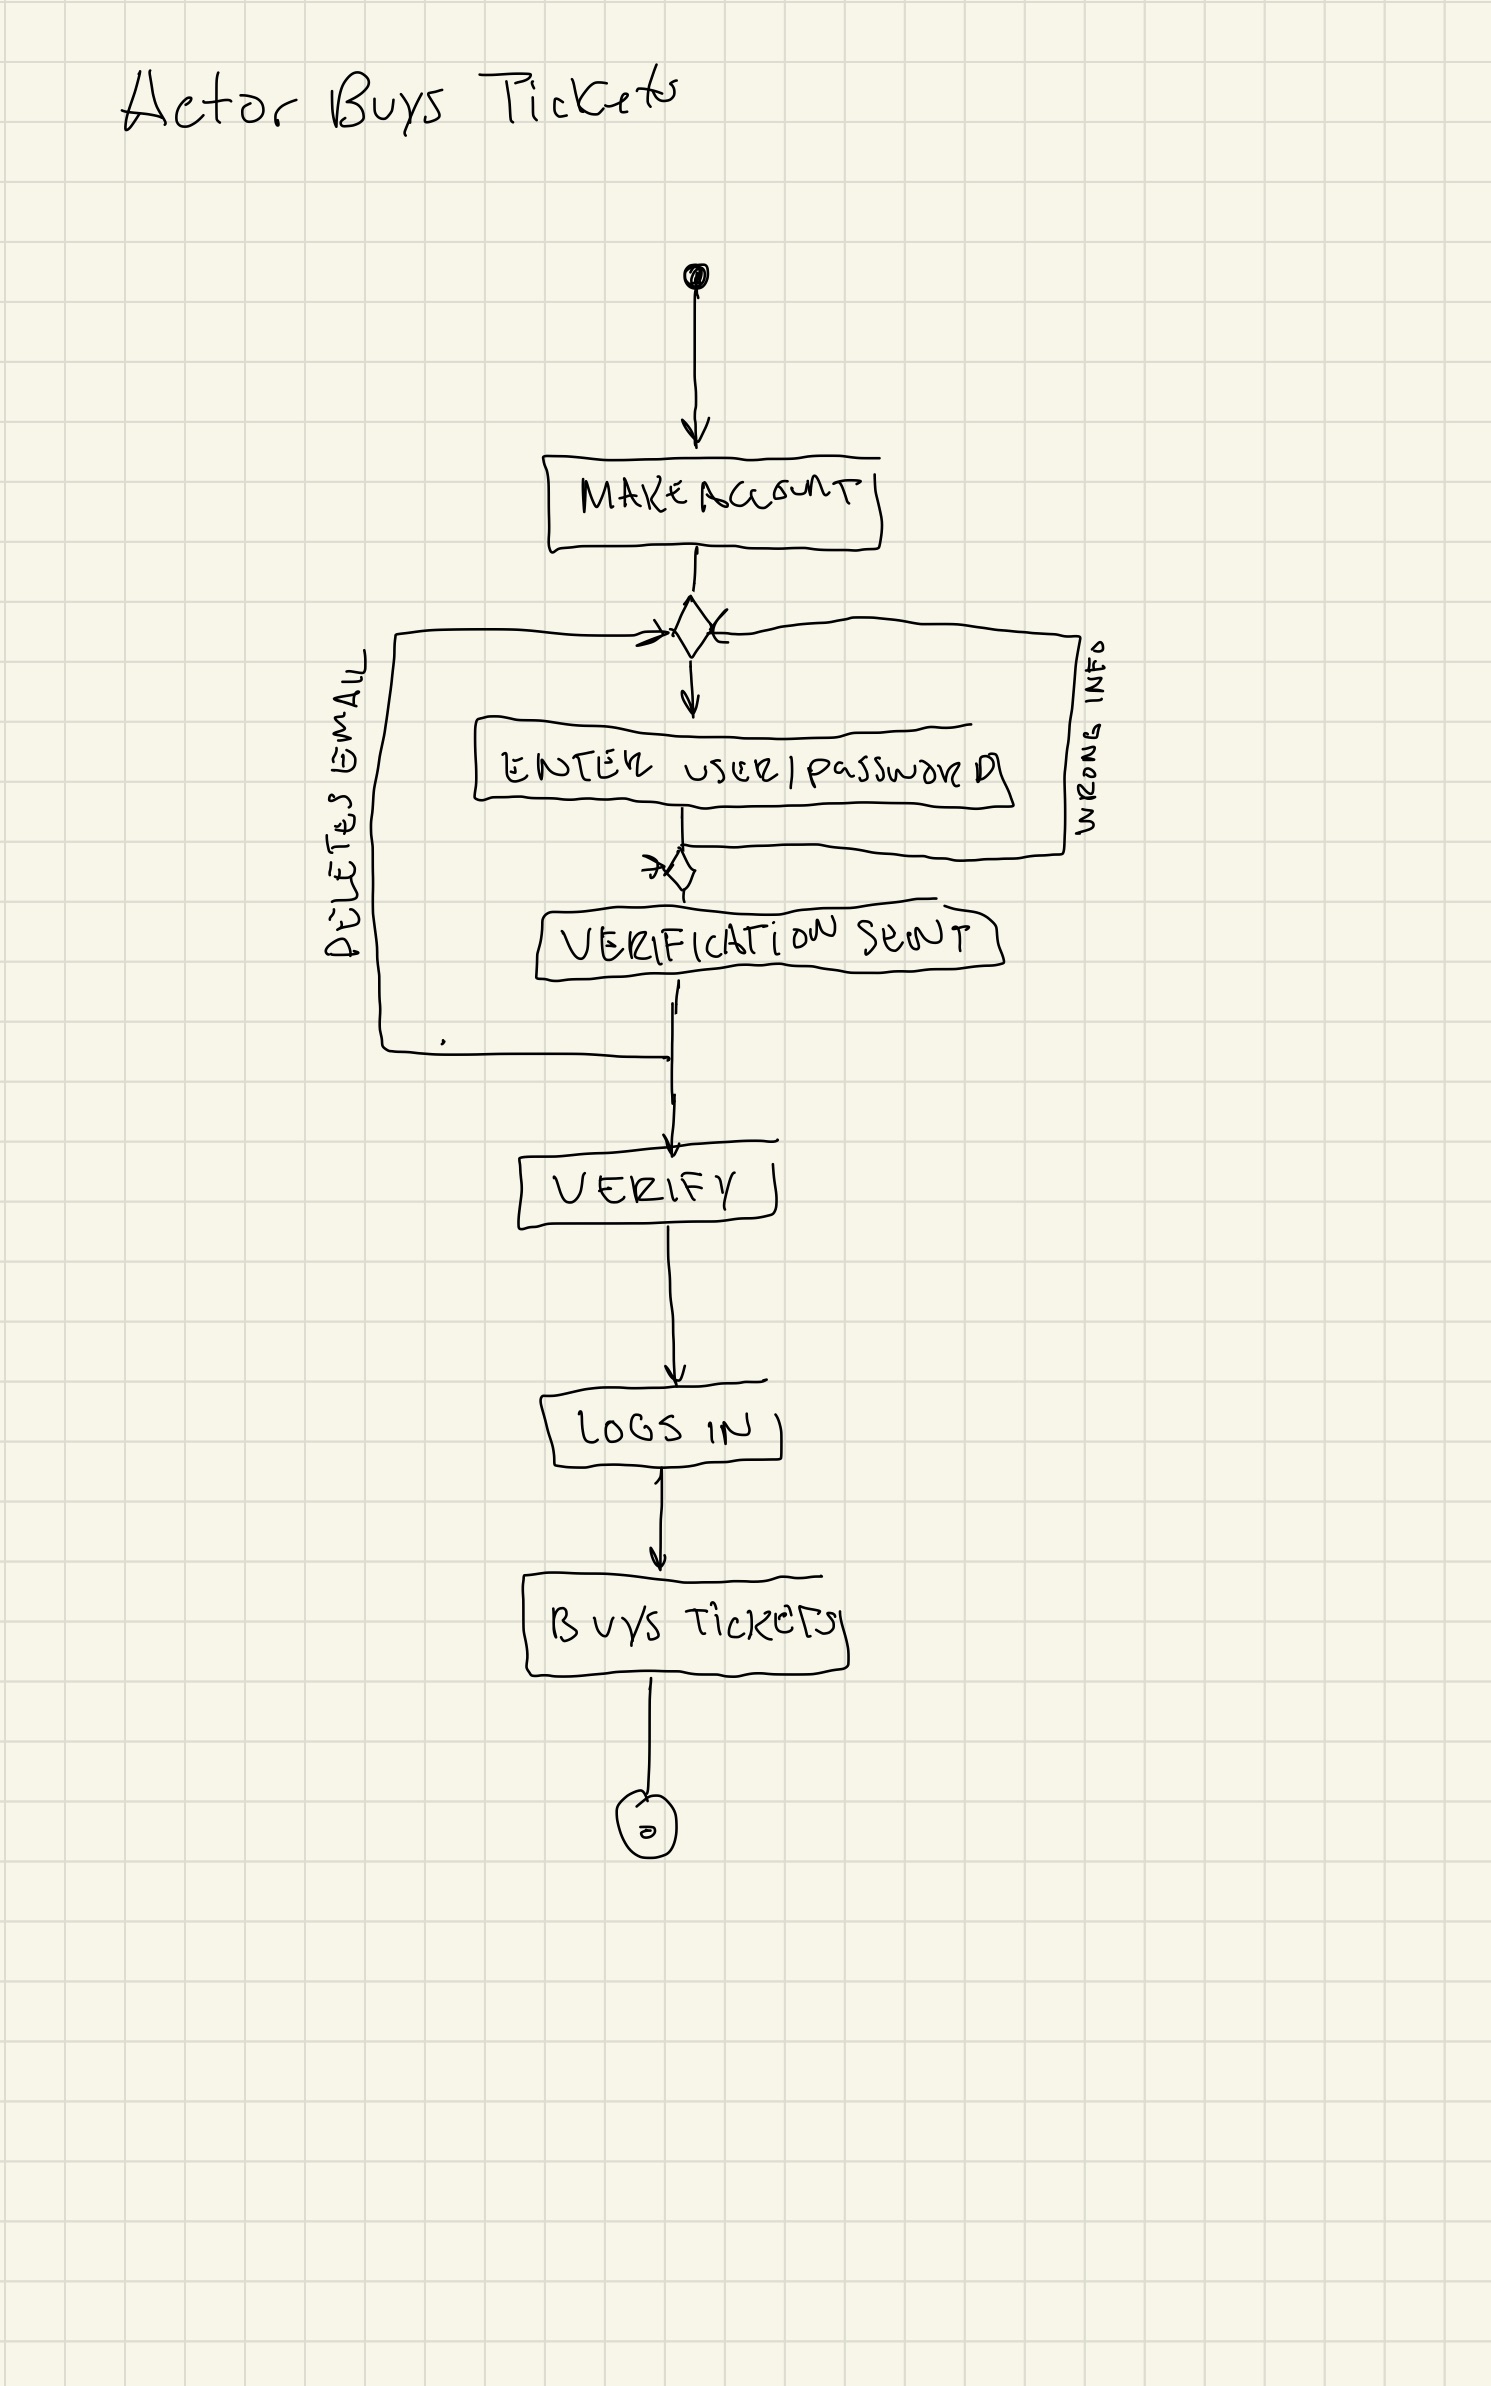 Actor Buys Tickets
MAKE ACCOUNT
DELETES EMAIL
WRONG INFO
ENTER USER/PASSWORD
VERIFICATION SENT
VERIFY
LOGS IN
BUYS TICKETS